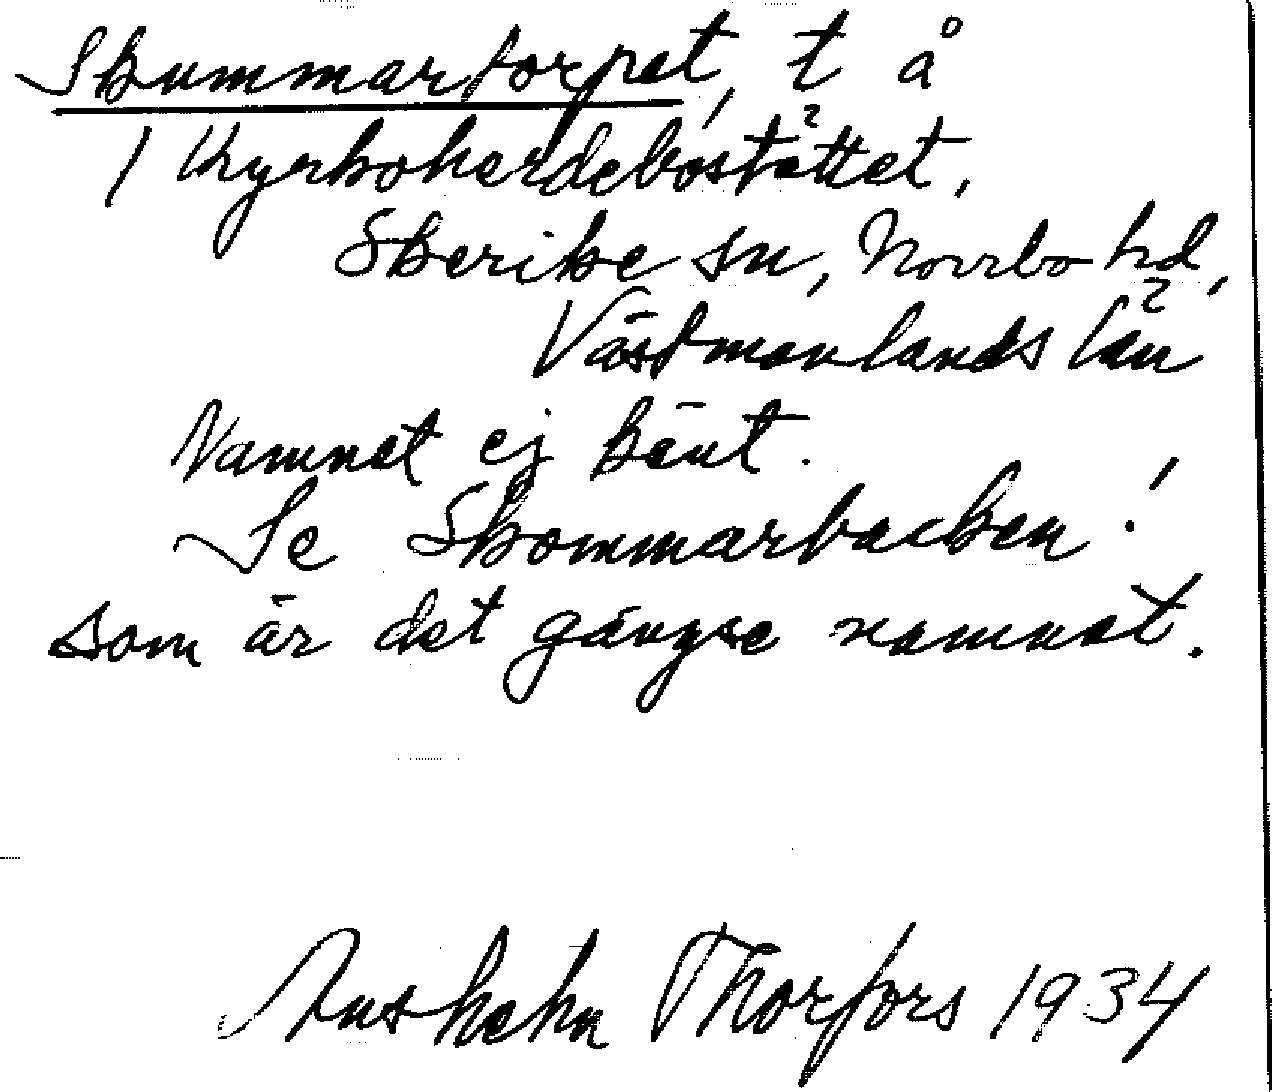 Skummartorpet, t å
1 Kyrkoherdebostället,
Skerike sn, Norrbo hd,
Västmanlands län
Namnet ej känt.
Se Skommarbacken !
som är det gängse namnet.
Thorfors 1934